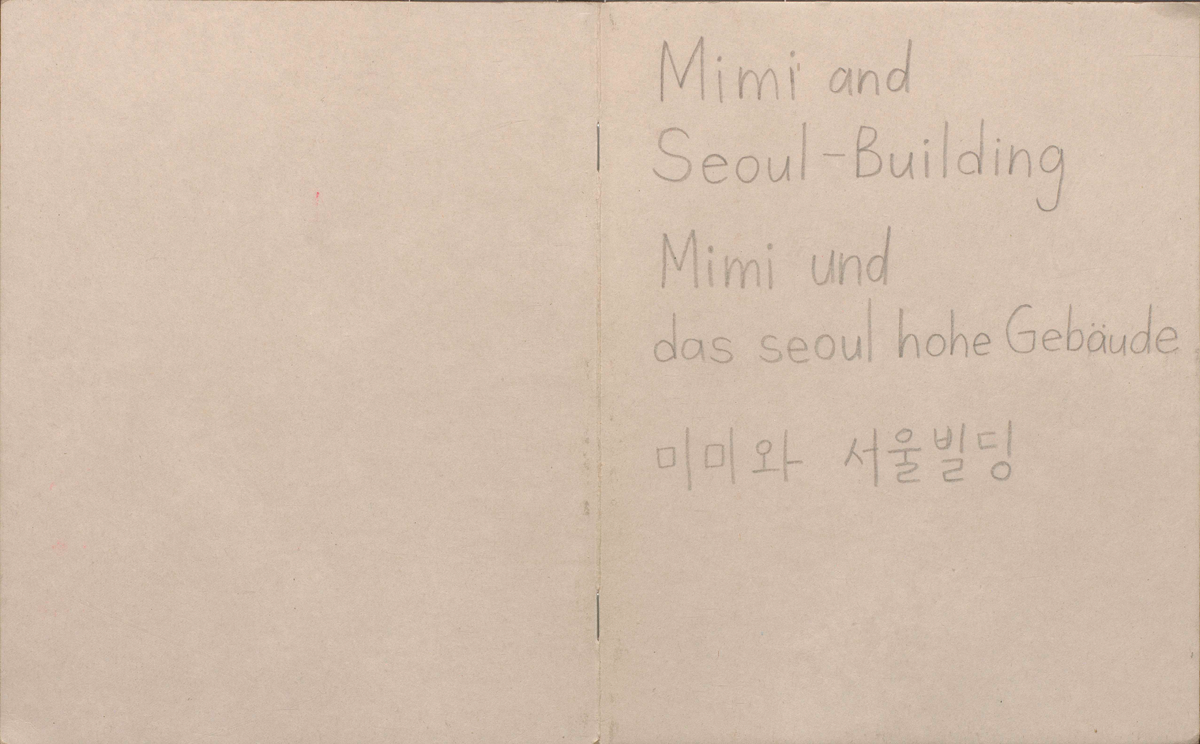 Mimi and
Seoul-Building
Mimi und
das seoul hohe Gebäude
미미와 서울빌딩